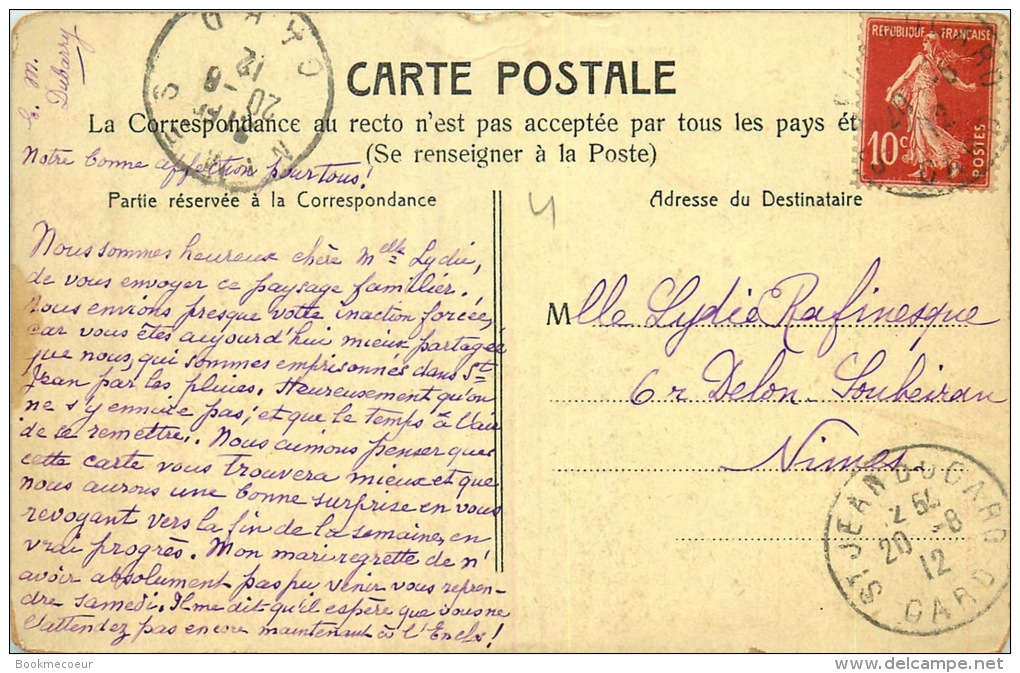 E. M.
Dubarry
NIMES GARD
20 -8
12
CARTE POSTALE
La Correspondance au recto n'est pas acceptée par tous les pays ét
(Se renseigner à la Poste)
REPUBLIQUE FRANÇAISE
10c
POSTES
Notre bonne affection pour tous!
Partie réservée à la Correspondance
Adresse du Destinataire
4
Nous sommes heureux chère Melle Lydie,
de vous envoyer ce paysage familier.
Nous envions presque votre inaction forcée,
car vous êtes aujourd'hui mieux partagée
que nous, qui sommes emprisonnés dans St
Jean par les pluies. Heureusement qu'on
ne s'y ennuie pas, et que le temps à l'air
de se remettre. Nous aimons penser que
cette carte vous trouvera mieux et que
nous aurons une bonne surprise en vous
revoyant vers la fin de la semaine, en
vrai progrès. Mon mari regrette de n'
avoir absolument pas pu venir vous repren-
dre samedi. Il me dit qu'il espère que vous ne
l'attendez pas encore maintenant à l'Enclos!
Mlle Lydie Rafinesque
6 r Delon-Soubeiran
Nimes
ST JEAN DU GARD
20 -8
12
GARD
Bookmecoeur
www.delcampe.net